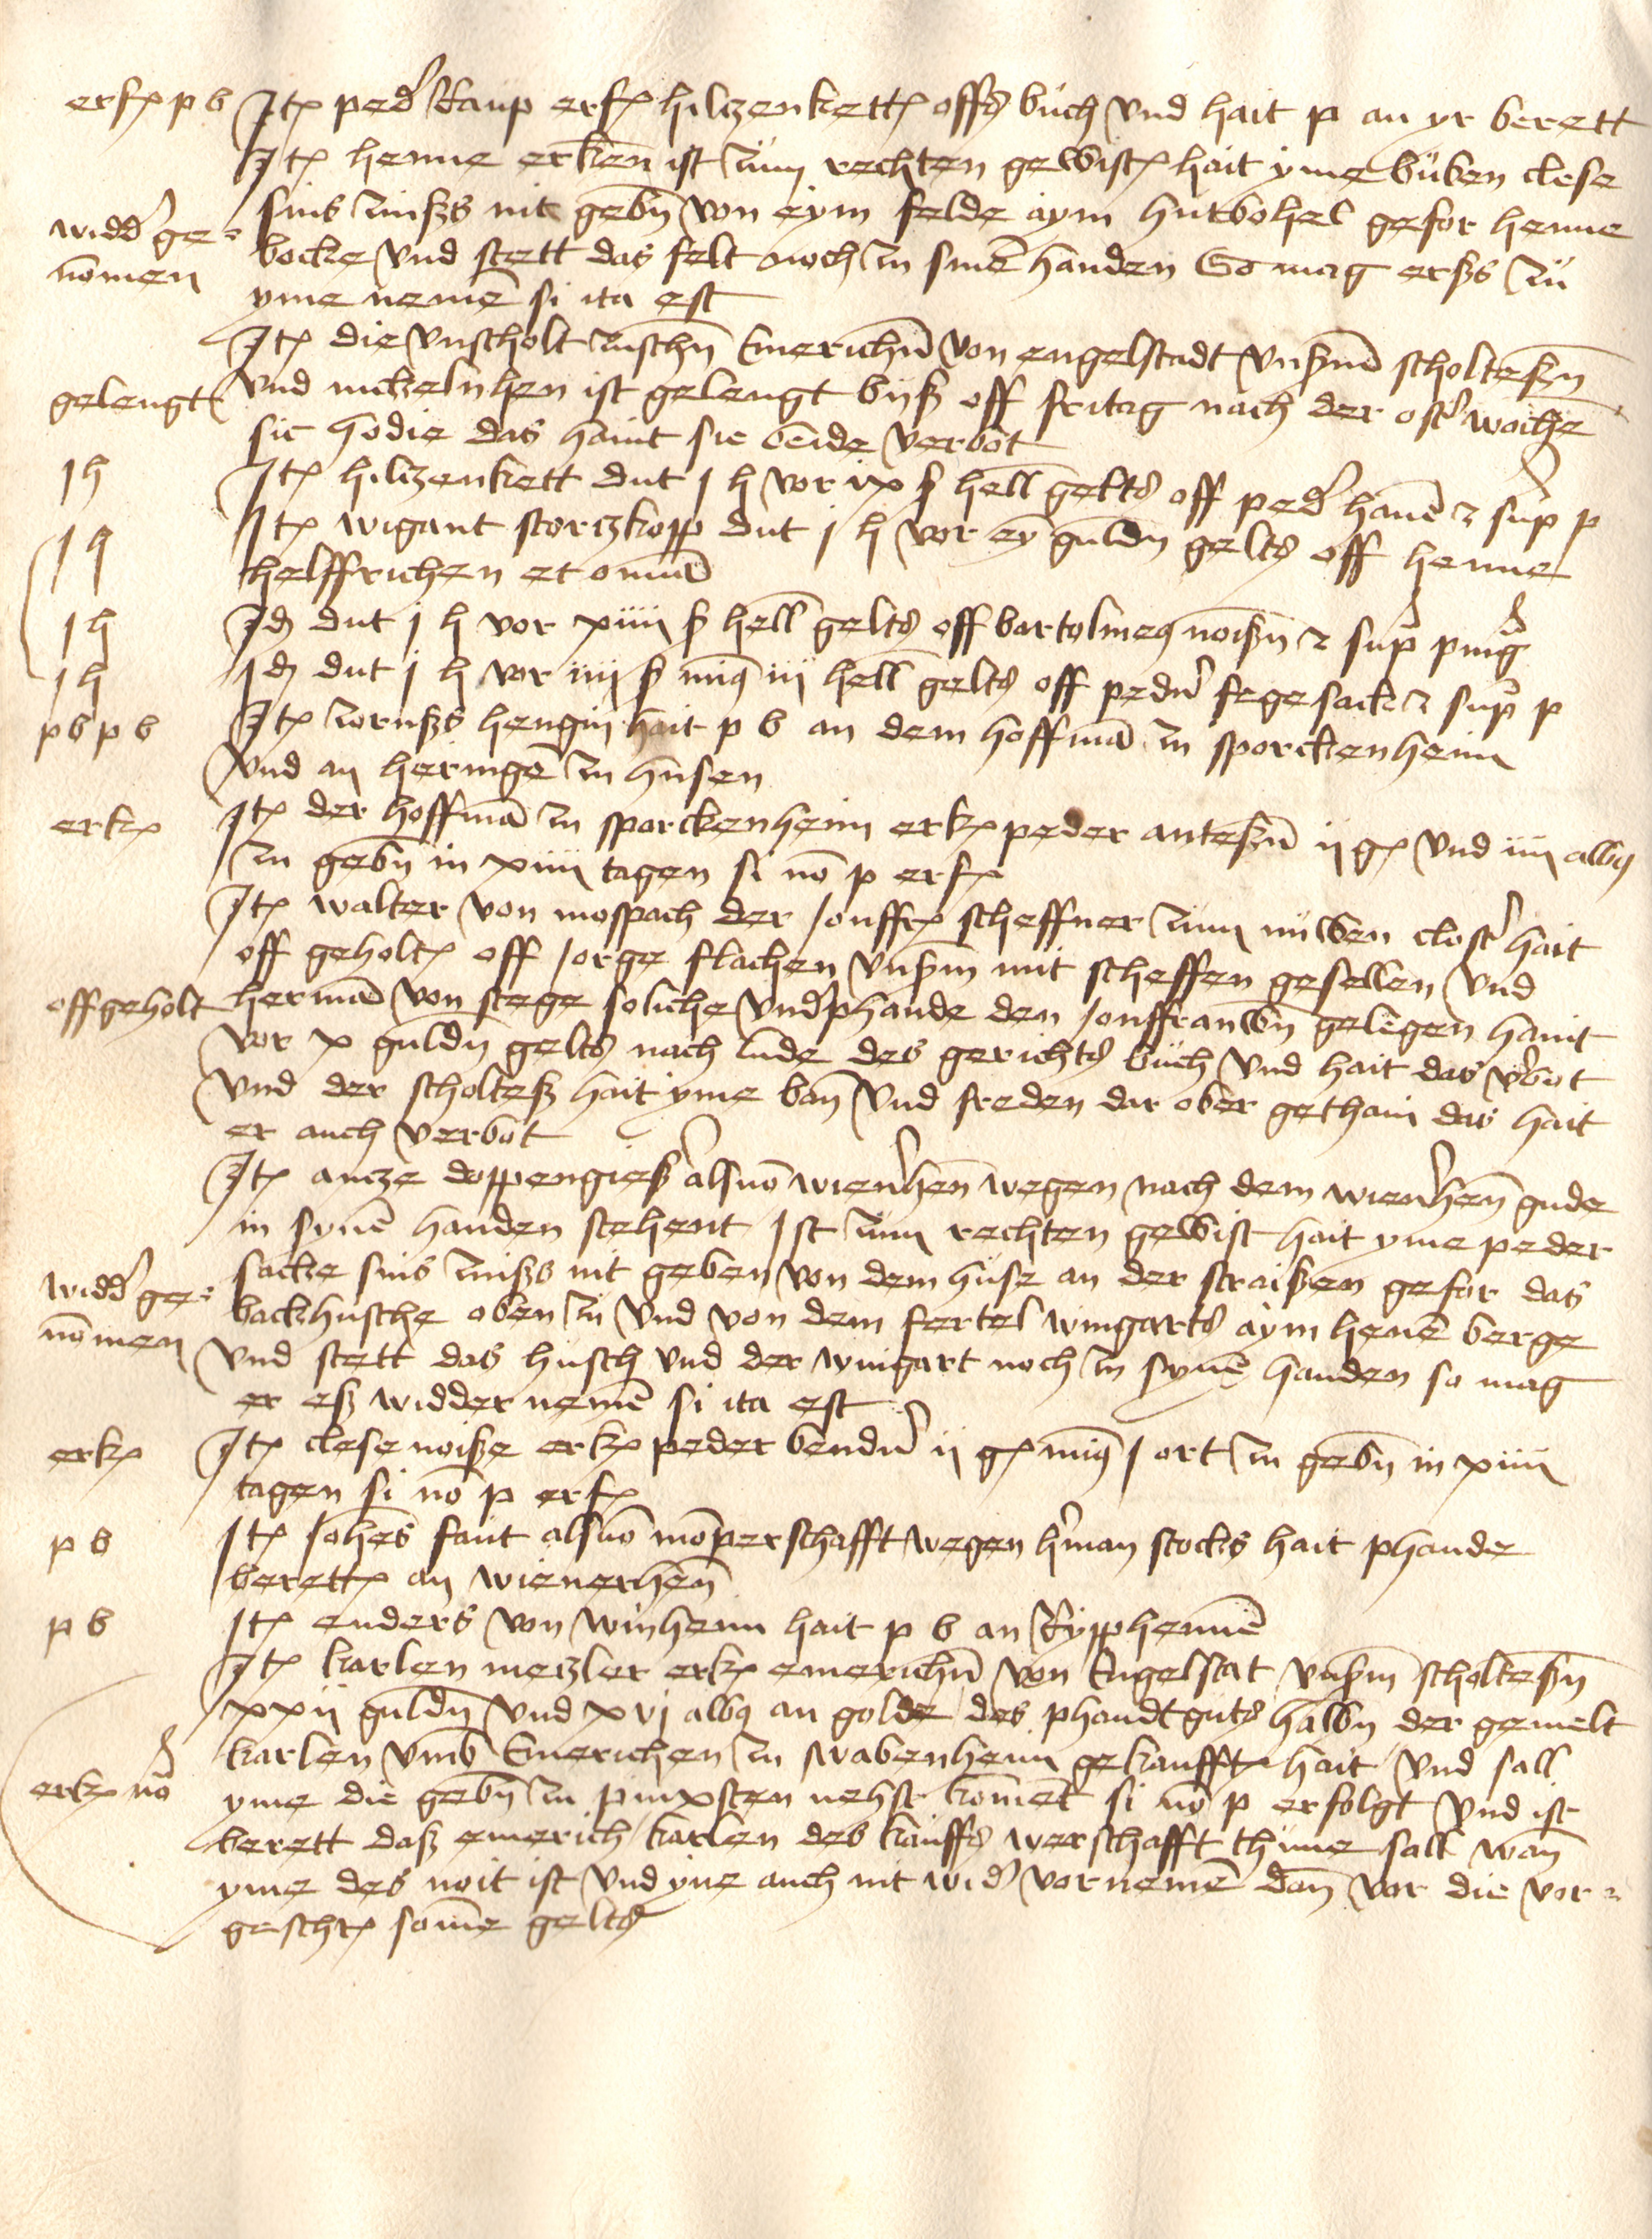 erf(olgt) p b Jt(em) ped(er) Raup erf(olgt) hiltzenkett(en) offs buch und hait p an yr berett
Jt(em) henne erken ist zum rechten gewist(en) hait yme buben clese
sins zinßs nit gebn von eym felde aym hutbohel gefor henne
widd(er) ge= bocke und stett das felt noch in sinē handen So mag erßs zu
nōmen yme nemē si ita est
Jt(em) die unscholt zuschn Emerichn von engelstadt unßm̄ scholteßn
gelengt und nickelnhen ist gelengt byß off fritag nach der ost(er) woche
sic hodie das haint sie beide verbot
j h Jt(em) hiltzenkett dut j h vor ix ß hell gelts off ped(er) hanē z sup(er) p
j h Jt(em) wigant stortzkopp dut j h vor ey guldn gelts off henne
helffrichen et om̄ia
j h Jd(em) dut j h vor xiiii ß hell gelts off bartolmeq noißn z sup(er) ping(nora)
j h Jd(em) dut j h vor iiij ß miq iij hell gelts off pedn(er) fegesack z sup(er) p
p b p b Jt(em) zornßs hengin hait p b an dem hoffmā zu sporckenheim
und an heringē zu husen
erk(ennt) Jt(em) der hoffmā zu sporckenheim erk(ennt) peder anteßn̄ ij g(ulden) und iiij albq
zu gebn in xiiij tagen si nō p erf(olgt)
Jt(em) walter von mospach der jonffr(auwen) scheffner zum nuwen clost(er) hait
off geholt(en) off jorge flachen unßm mit scheffen gesellen und
offgeholt hermā von stege soliche und(er)phande den jonffrauwn gelegen haint
vor x guldn gelts nach lude des gerichts buch und hait das v(er)bot
und der scholteß hait yme ban und freden dar ober gethain das hait
er auch verbot
Jt(em) antze doppengieß(er) als vō wien(er)hen wegen nach dem wien(er)hen gude
in synē handen stehent Jst zum rechten gewist hait yme peder
sacke sins zinßs nit geben von dem huse an der straißen gefor das
widd(er) ge= backhusche oben zu und von dem fertel wingarts aym henē berge
nōmen und stett das husch und der wingart noch in synē handen so mag
er eß widder nemē si ita est
erk(ennt) Jt(em) clese noiße erk(ennt) peder bend(er) ij g(ulden) miq j ort zu gebn in xiiij
tagen si nō p erf(olgt)
p b Jt(em) Johes faut als vō mōperschafft wegen h(er)man stocks hait phande
berett(en) an wienerhen
p b Jt(em) enders von winheim hait p b an kypphennē
Jt(em) karlen metzler erk(ennt) emerichn von Engelstat unßm scholteßn
xxij guldn und xvj albq an golde des phandtguts halbn der gemelt
karlen umb Emerichen zu swabenheim gekaufft(en) hait und sall
erk(ennt) nō yme die gebn zu pinxsten nehst komet si nō p erfolgt und ist
berett daß emerich karlen des kauffs werschafft thune sall wan
yme des noit ist und yne auch nit wid(er) vornemē dan vor die vor=
geschr(iben) som̄e gelts